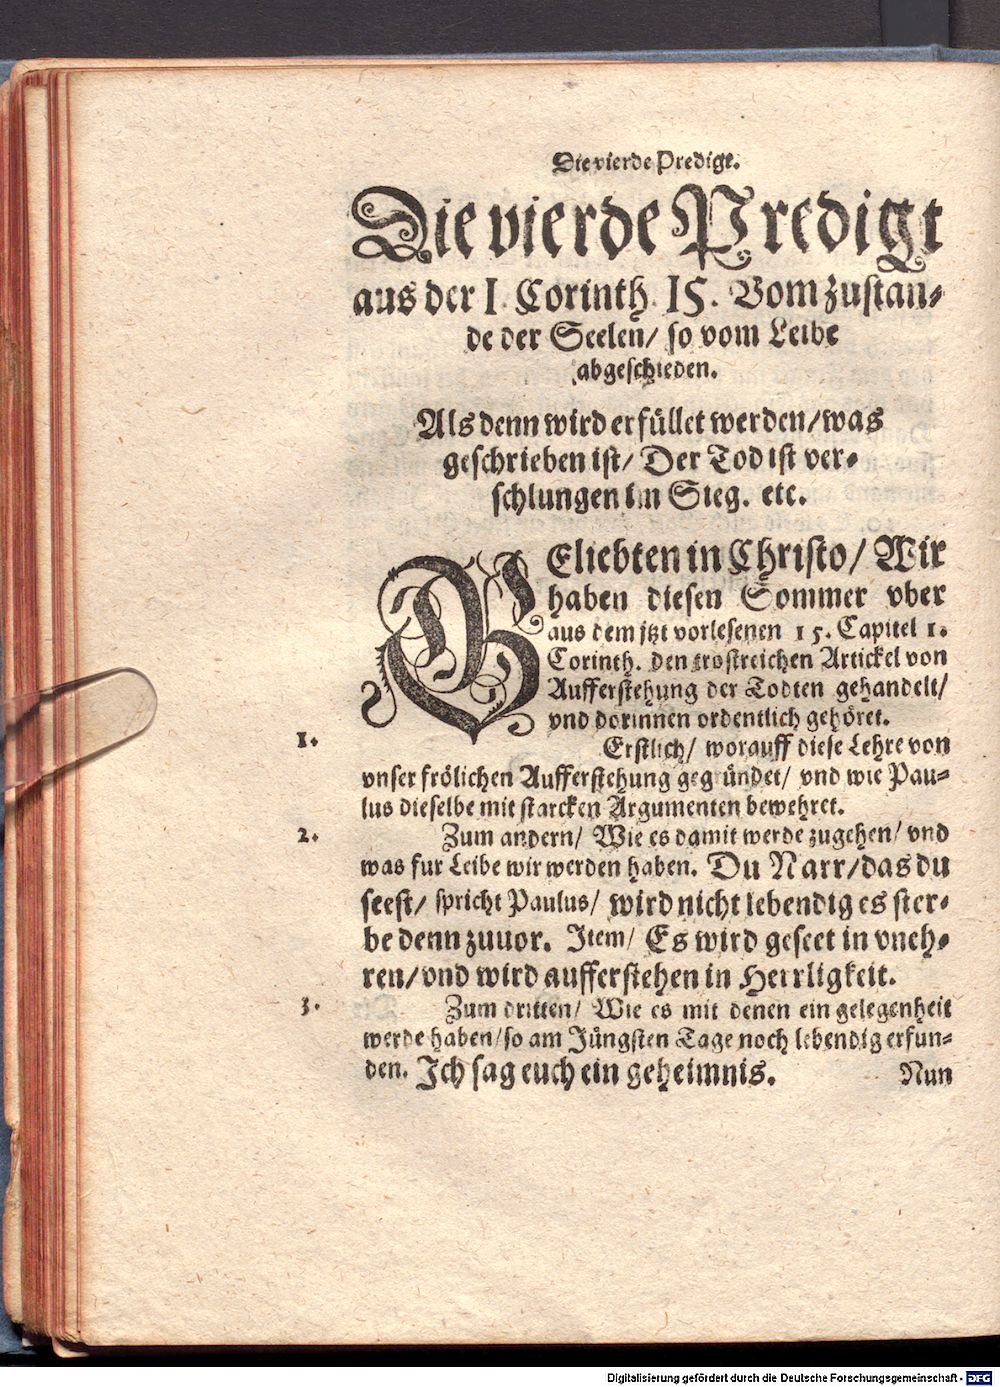 Die vierde Predigt.
Die vierde Predigt
aus der 1. Corinth. 15. Vom Zustan-
de der Seelen/ so vom Leibe
abgeschieden.
Als denn wird erfüllet werden/ was
geschrieben ist/ Der Tod ist ver-
schlungen im Sieg. etc.
GEliebten in Christo/ Wir
haben diesen Sommer vber
aus dem jtzt vorlesenen 15. Capitel 1.
Corinth. den trostreichen Artickel von
Aufferstehung der Todten gehandelt/
vnd dorinnen ordentlich gehöret.
1. Erstlich/ worauff diese Lehre von
vnser frölichen Aufferstehung gegründet/ vnd wie Pau-
lus dieselbe mit starcken Argumenten bewehret.
2. Zum andern/ Wie es damit werde zugehen/ vnd
was fur Leibe wir werden haben. Du Narr/ das du
seest/ spricht Paulus/ wird nicht lebendig es ster-
be denn zuuor. Item/ Es wird geseet in vneh-
ren/ vnd wird aufferstehen in Herrligkeit.
3. Zum dritten/ Wie es mit denen ein gelegenheit
werde haben/ so am Jüngsten Tage noch lebendig erfun-
den. Ich sag euch ein geheimnis.
Nun
Digitalisierung gefördert durch die Deutsche Forschungsgemeinschaft - DFG